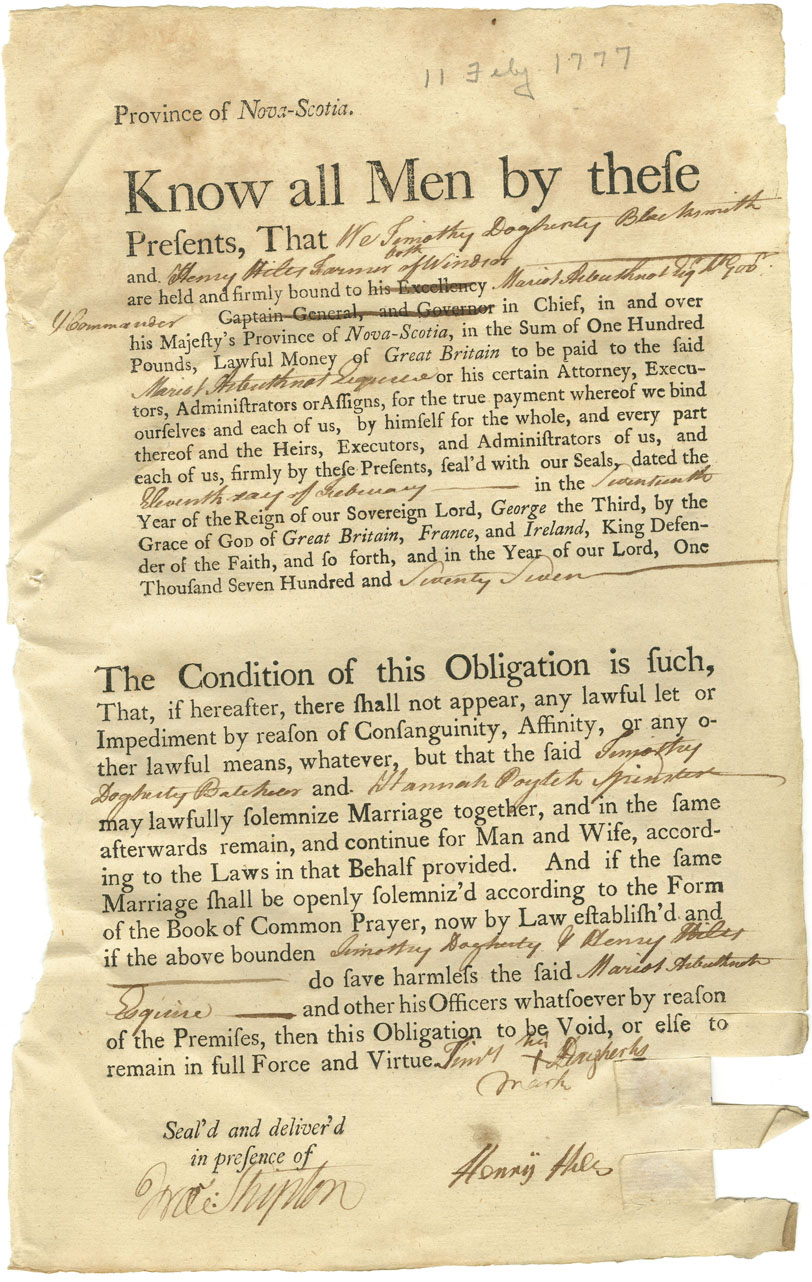 11 Feby 1777
Province of Nova-Scotia.
Know all Men by theſe
Preſents, That We Timothy Dogherty Blacksmith
and Henry Hiles Farmer both of Windsor
are held and firmly bound to his Excellency Mariot Arbuthnot Esqr. Lt. Govr.
& Commander Captain General, and Governor in Chief, in and over
his Majeſty's Province of Nova-Scotia, in the Sum of One Hundred
Pounds, Lawful Money of Great Britain to be paid to the ſaid
Mariot Arbuthnot Esquire or his certain Attorney, Execu-
tors, Adminiſtrators or Aſſigns, for the true payment whereof we bind
ourſelves and each of us, by himſelf for the whole, and every part
thereof and the Heirs, Executors, and Adminiſtrators of us, and
each of us, firmly by theſe Preſents, ſeal'd with our Seals, dated the
Eleventh day of February in the Seventeenth
Year of the Reign of our Sovereign Lord, George the Third, by the
Grace of GOD of Great Britain, France, and Ireland, King Defen-
der of the Faith, and ſo forth, and in the Year of our Lord, One
Thouſand Seven Hundred and Seventy Seven
The Condition of this Obligation is ſuch,
That, if hereafter, there ſhall not appear, any lawful let or
Impediment by reaſon of Conſanguinity, Affinity, or any o-
ther lawful means, whatever, but that the ſaid Timothy
Dogherty Batcheor and Hannah Poyteh Spinster
may lawfully ſolemnize Marriage together, and in the ſame
afterwards remain, and continue for Man and Wife, accord-
ing to the Laws in that Behalf provided. And if the ſame
Marriage ſhall be openly ſolemniz'd according to the Form
of the Book of Common Prayer, now by Law eſtabliſh'd and
if the above bounden Timothy Dogherty & Henry Hiles
do ſave harmleſs the ſaid Mariot Arbuthnot
Esquire and other his Officers whatſoever by reaſon
of the Premiſes, then this Obligation to be Void, or elſe to
remain in full Force and Virtue. Timt his + Dogherty
mark
Seal'd and deliver'd
in preſence of
Henry Hiles
Shipton